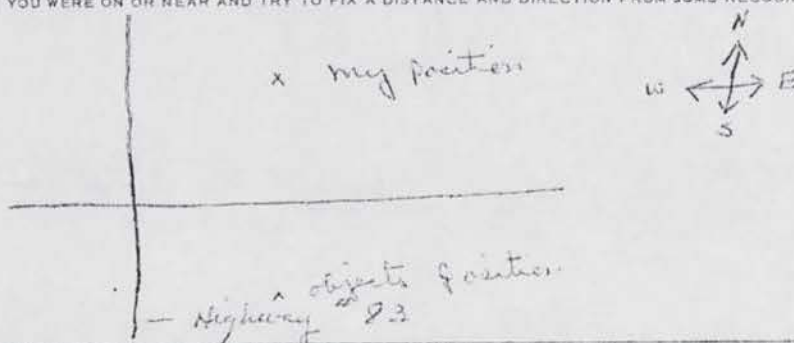 YOU WERE ON OR NEAR AND TRY TO FIX A DISTANCE AND DIRECTION FROM SOME
N
x my position
W E
S
objects position
— Highway # 83